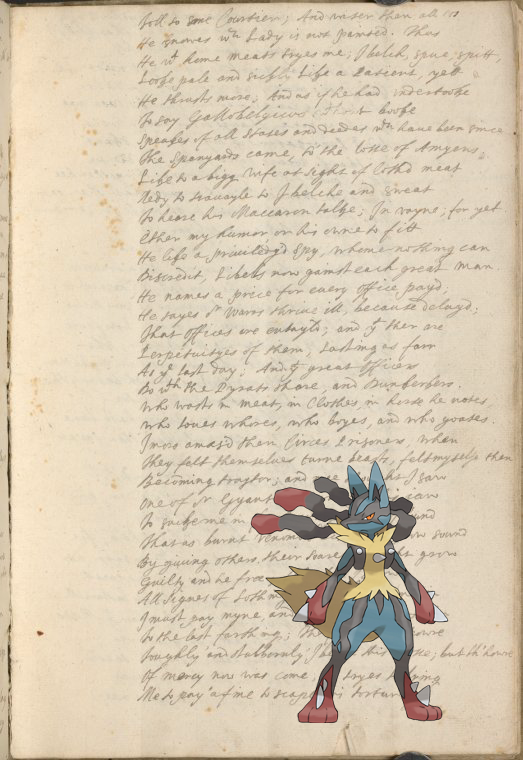 Toll to some Courtier; And wiser then all us
He knowes wch Lady is not painted. Thus
He wt home meats tryes me; I belch, spue, spitt,
Looke pale and sickly Like a Patient, yett
He thrusts more; And as if he had undertooke
To say Gallobelgicus without booke
Speakes of all States and deedes wch have been since
The Spanyards came, to the losse of Amyens.
Like to a bigg wife at sight of lothd meat
Redy to travayle so I belche and sweat
To heare his Maccaron talke; In vayne; for yet
Ether my humor or his owne to fitt
He like a priviledg'd Spy, whome nothing can
Discredit, Libels now gainst each great man.
He names a price for every office payd;
He sayes or Warrs thrive ill, because delayd;
That offices are entayld; and yt ther are
Perpetuityes of them, Lasting as farr
As ye last day; And yt great Officers
Do wth the Pyrats share, and Dunkerkers.
Who wasts in meat, in Clothes, in horse he notes
Who loves whores, who boyes, and who goates.
I more amasd than Circes Prisoners, when
They felt themselves turne beasts, felt myselfe then
Becoming traytor; and I saw
One of or Gyant
To sucke me in
That as burnt venom sound
By giving others, their soares grow
Guilty and he free
All signes of Lothing
I must pay myne, and
To the last farthing; The
Toughly and stubbornly I this; but th'howre
Of mercy now was come; tryes
Me to pay a fine to scape his tortur